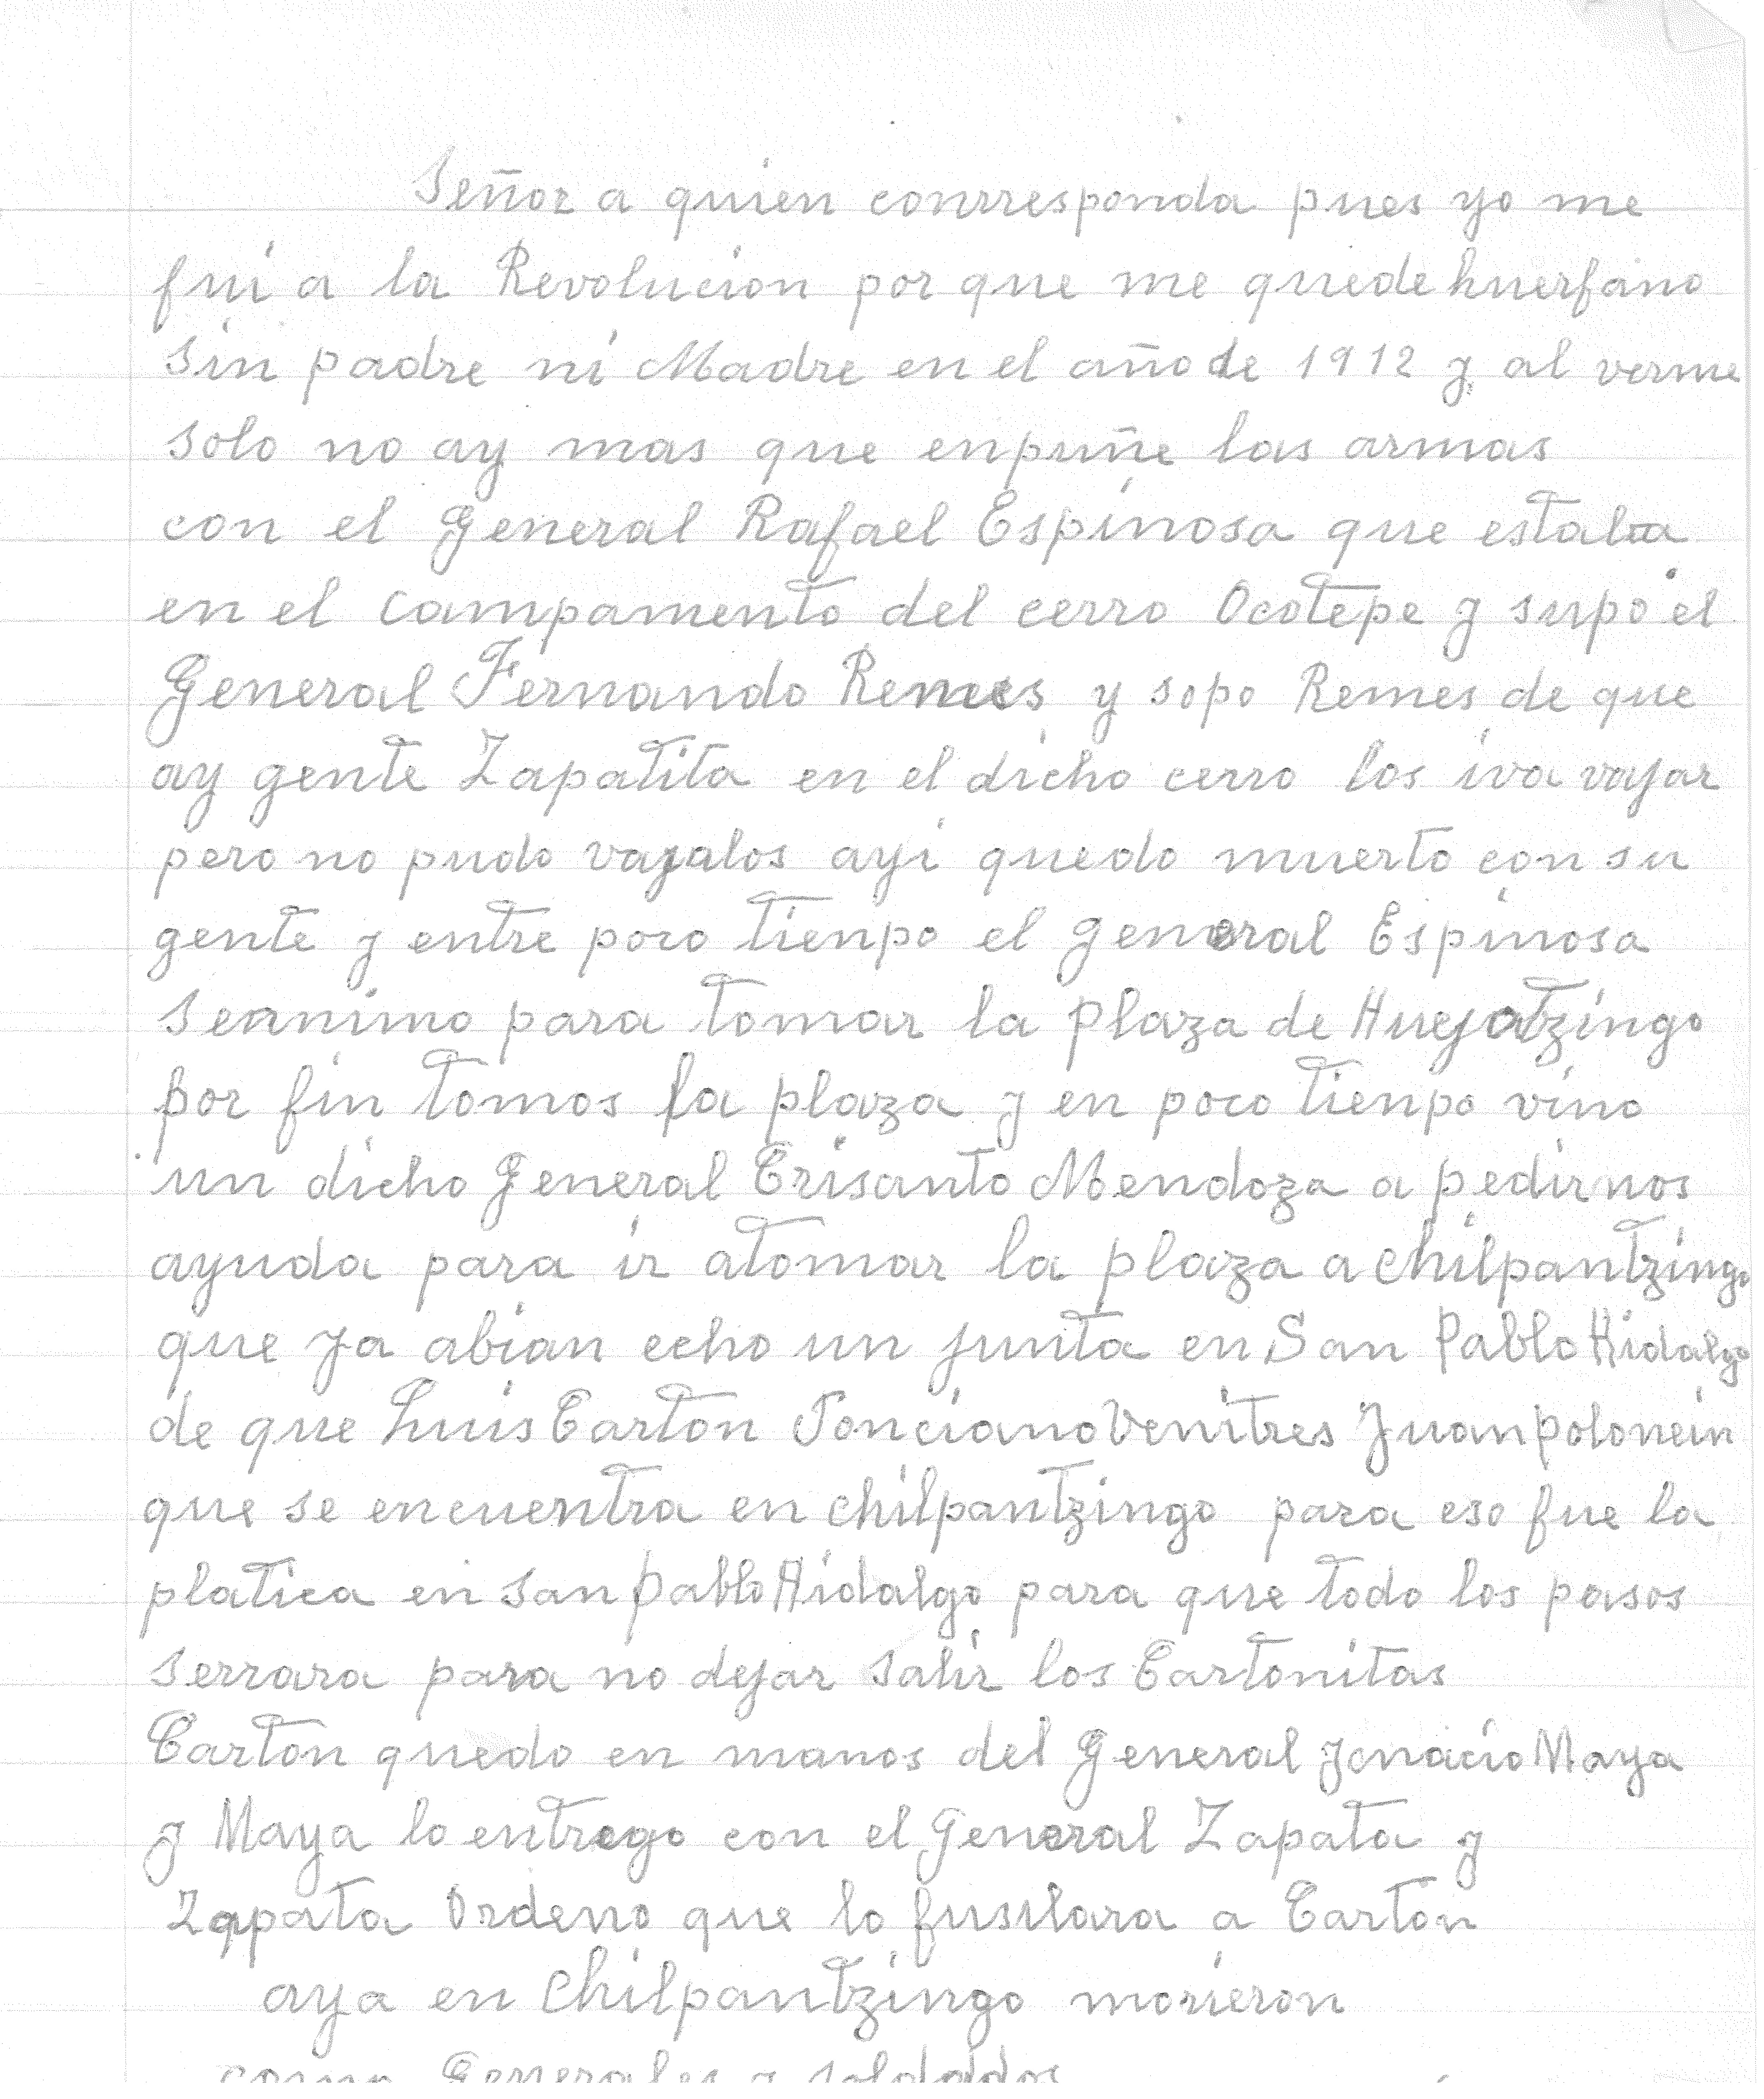 Señor a quien conrresponda pues yo me
fui a la Revolucion por que me quede huerfano
sin padre ni Madre en el año de 1912 y al verme
solo no ay mas que enpuñe las armas
con el General Rafael Espinosa que estaba
en el campamento del cerro Ocotepe y supo el
General Fernando Remes y sopo Remes de que
ay gente Zapatita en el dicho cerro los iva vajar
pero no pudo vajalos ayi quedo muerto con su
gente y entre poco tienpo el general Espinosa
seanimo para tomar la plaza de Huejotzingo
por fin tomos la plaza y en poco tienpo vino
un dicho General Crisanto Mendoza a pedirnos
ayuda para ir atomar la plaza a chilpantzingo
que ya abian echo un junta en San Pablo Hidalgo
de que Luis Carton Ponciano Venitres Juan polonein
que se encuentra en chilpantzingo para eso fue la
platica en san pablo Hidalgo para que todo los pasos
serrara para no dejar salir los Cartonitas
Carton quedo en manos del General Jonacio Maya
y Maya lo entrego con el General Zapata y
Zapata Ordeno que lo fusilara a Carton
aya en Chilpantzingo morieron
como Generales y soldados